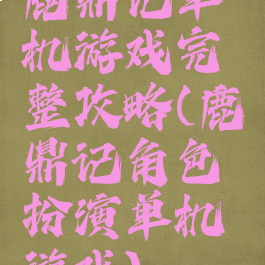 鹿鼎记单
机游戏完
整攻略(鹿
鼎记角色
扮演单机
游戏)